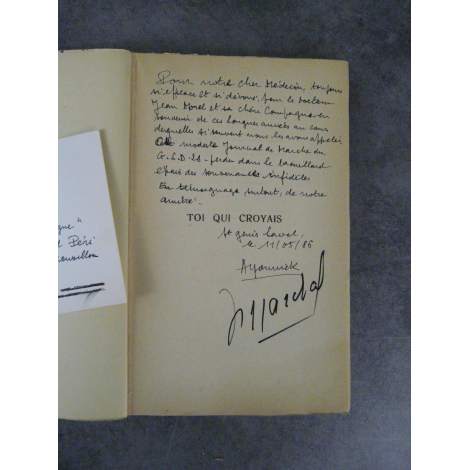 Pour notre cher Médecin, toujours
si efficace et si dévoué, pour le Docteur
Jean Morel et sa chère Compagne en
souvenir de ces longues années au cours
desquelles si souvent nous les avons appelés
modeste Journal de Marche du
G.S.D. 21 - perdu dans le brouillard
épais des souvenances infidèles
En témoignage, surtout, de notre
amitié.
TOI QUI CROYAIS
St Genis Laval,
le 11/05/86
gne"
Péri